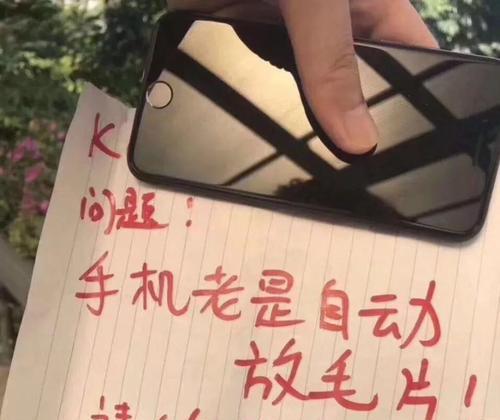 K
问题：
手机老是自动
放毛片！